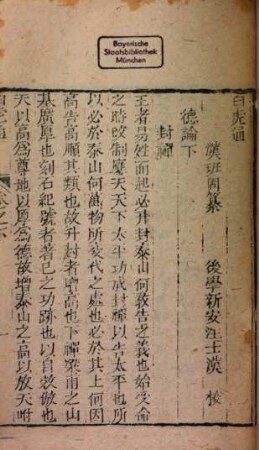 Bayerische
Staatsbibliothek
München
白虎通
漢班固纂　後學新安汪士漢　校
德論下
封禪
王者易姓而起必升封泰山何敎告之義也始受命
之時改制應天天下太平功成封禪以告太平也所
以必於泰山何萬物所交代之處也必於其上何因
高告高順其類也故升封者增高也下禪梁甫之山
基廣厚也刻石紀號者著己之功跡也以自效倣也
天以高爲尊地以厚爲德故增泰山之高以放天附
白虎通